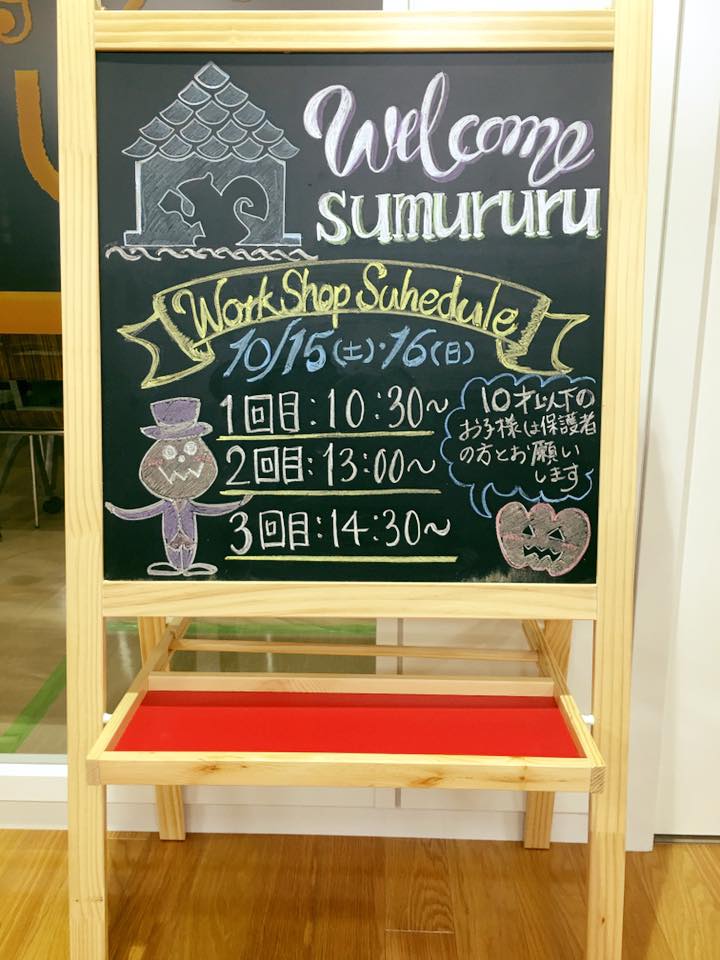 Welcome
sumururu
WorkShop Suhedule
10/15(土)・16(日)
1回目:10:30~
2回目:13:00~
3回目:14:30~
10才以下の
お子様は保護者
の方とお願い
します